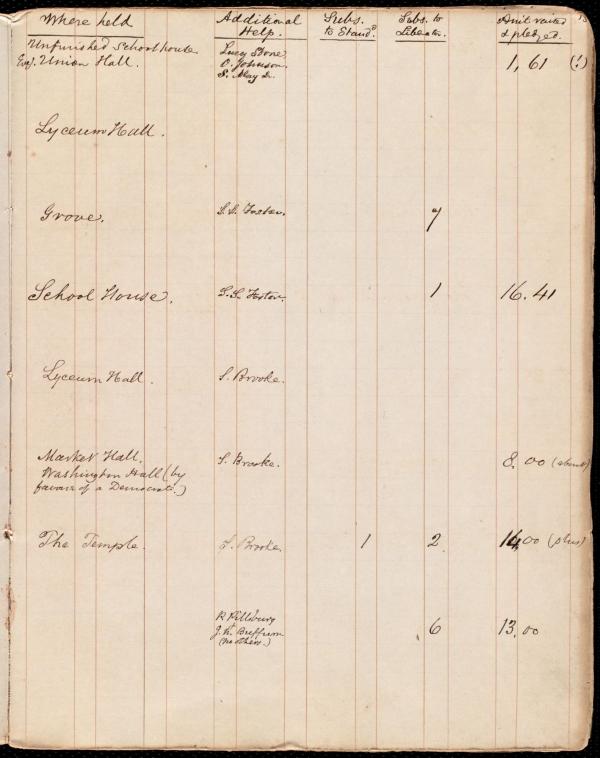 Where held
Additional Help.
Subs. to Stand.
Subs. to Liberator.
Am't raised & pledged.
Unfinished School house
Eve'g. Union Hall.
Lucy Stone.
O. Johnson.
S. May Jr.
1,61 (!)
Lyceum Hall.
Grove.
S. S. Foster.
7
School House.
S. S. Foster.
1
16.41
Lyceum Hall.
S. Brooke.
Market Hall.
Washington Hall (by
favour of a Democrat.)
S. Brooke.
8.00 (about)
The Temple.
S. Brooke.
1
2
14,00 (plus)
P. Pillsbury
J. N. Buffum
(no others.)
6
13,00